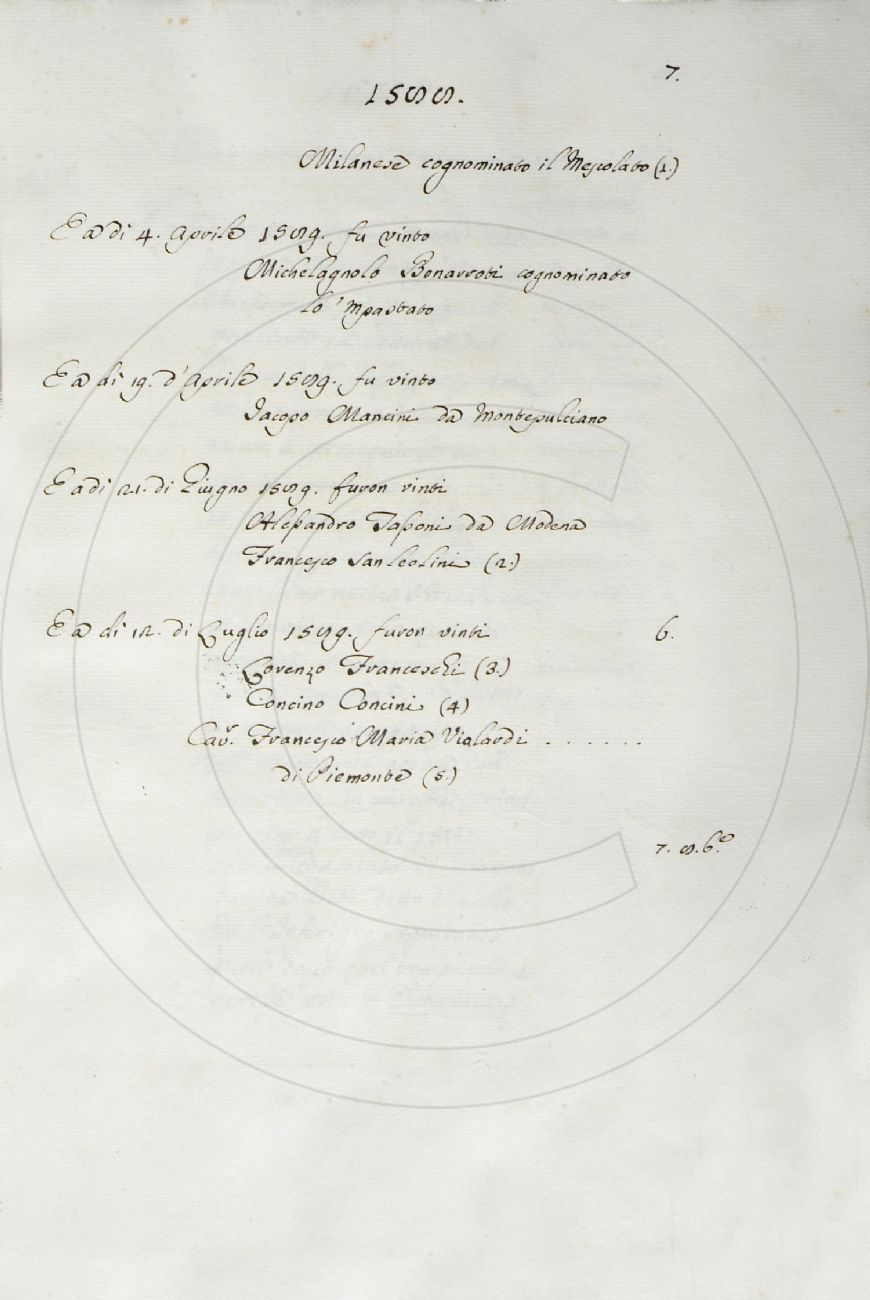 7.
1588.
Milanese cognominato il Mescolato (1.)
E a di 4. Aprile 1589. fu vinto
Michelagnolo Bonarroti cognominato
lo 'Mpastato
E a di 19. d'Aprile 1589. fu vinto
Jacopo Mancini da Montepulciano
E a di 21. di Giugno 1589. furon vinti
Alessandro Tassoni da Modena
Francesco Sanleolini (2.)
E a di 12. di Luglio 1589. furon vinti 6.
Lorenzo Franceschi (3.)
Concino Concini (4)
Cav.r Francesco Maria Vialardi . . . . . .
di Piemonte (5.)
7. 8. b.e